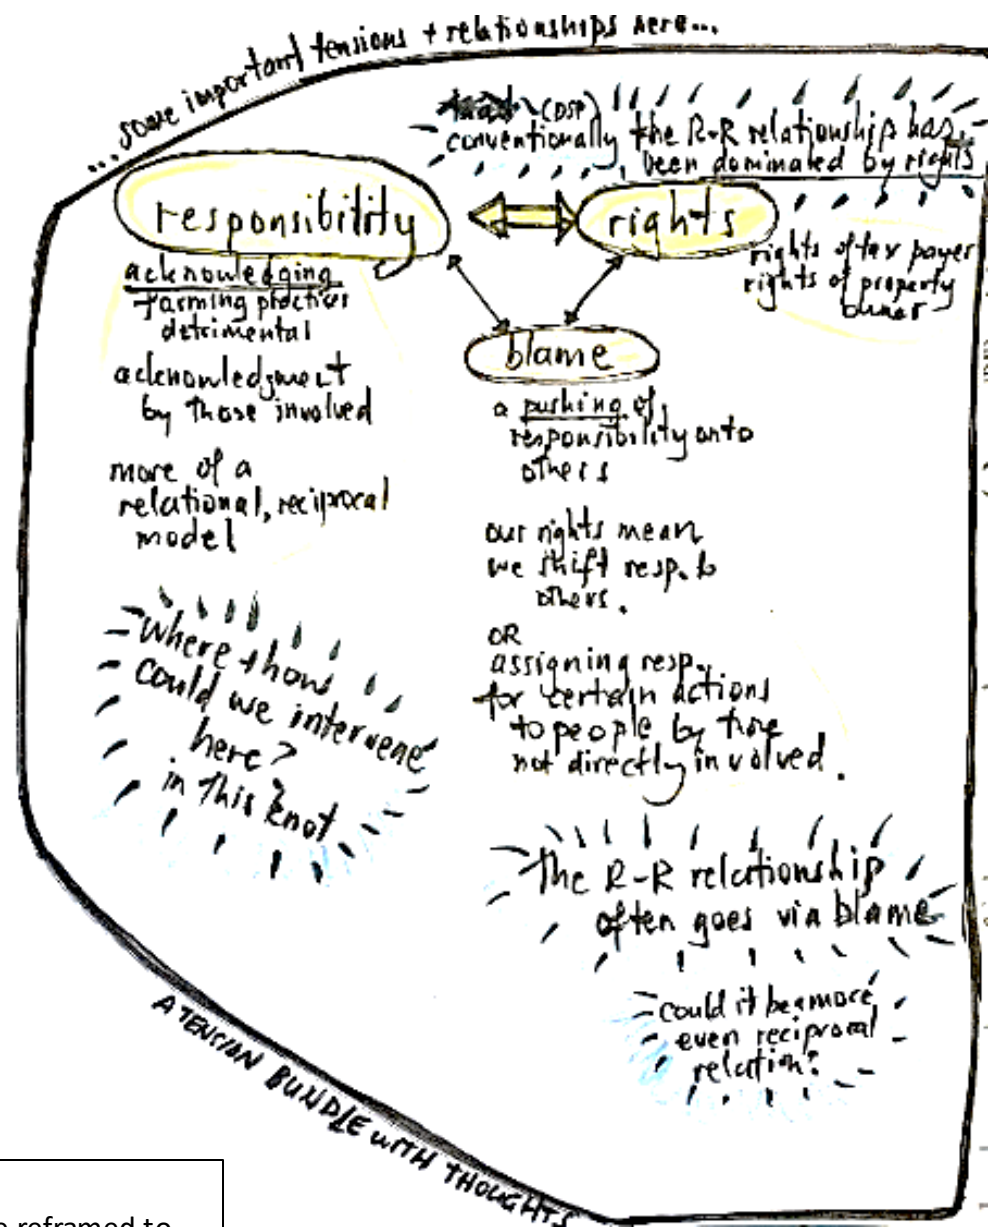 ...some important tensions + relationships here...
(DSP)
conventionally the R-R relationship has
been dominated by rights
responsibility
rights
acknowledging
farming practices
detrimental
acknowledgment
by those involved
more of a
relational, reciprocal
model
rights of tax payer
rights of property
owner
blame
a pushing of
responsibility onto
others
our rights mean
we shift resp. to
others.
OR
assigning resp.
for certain actions
to people by those
not directly involved.
where + how
could we intervene
here?
in this knot
The R-R relationship
often goes via blame
could it be a more
even reciprocal
relation?
A TENSION BUNDLE WITH THOUGHTS
reframed to